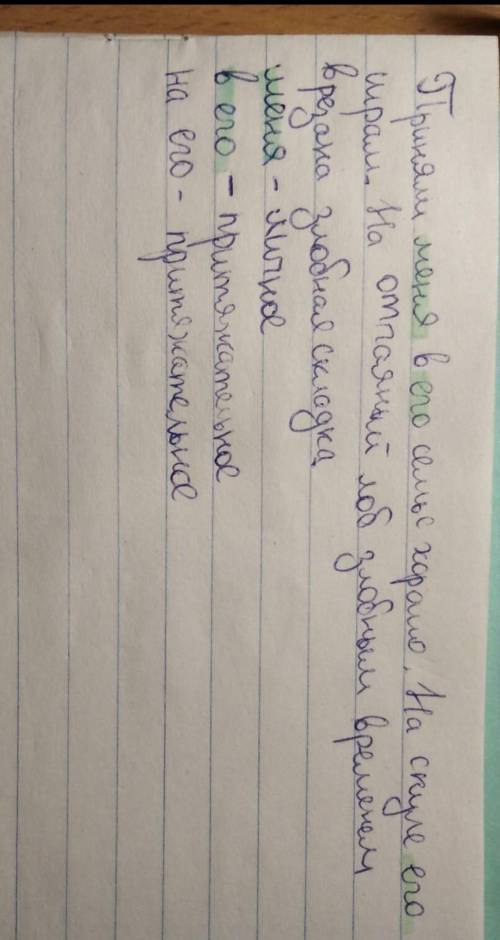 Приняли меня в его семье хорошо. На скуле его
шрам. На отчаяный лоб злобным временем
врезана злобная складка
меня - личное
в его - притяжательное
на его - притяжательное